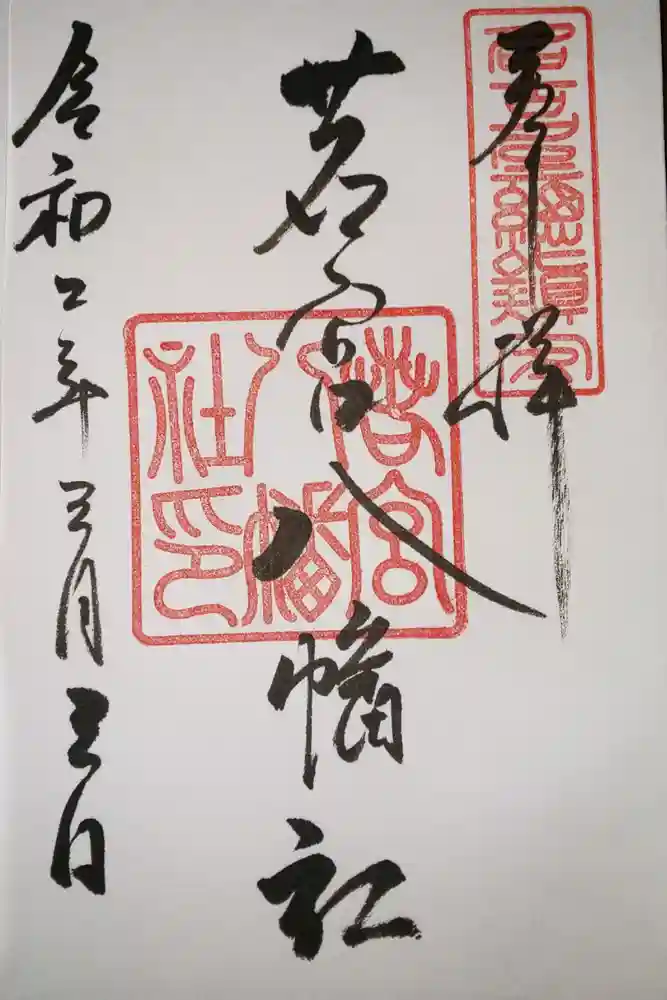 奉拝
若宮八幡社
若宮
八幡
社印
令和二年三月三日